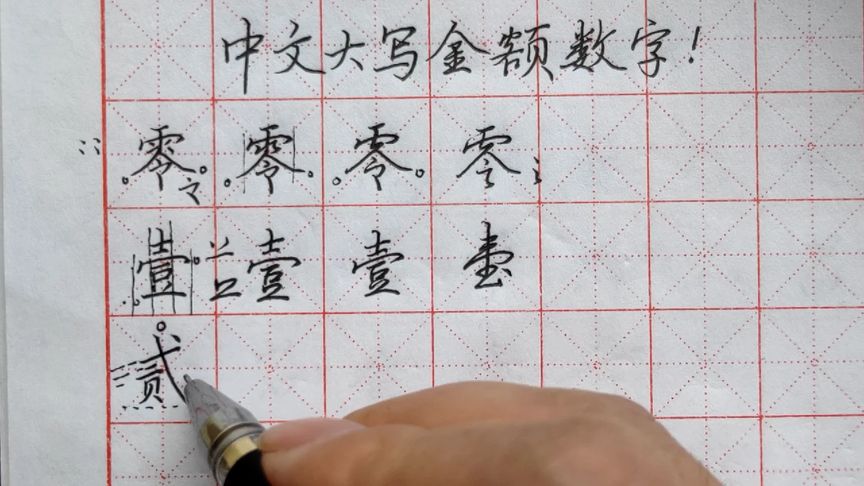 中文大写金额数字!
零零零零
壹壹壹壹
贰